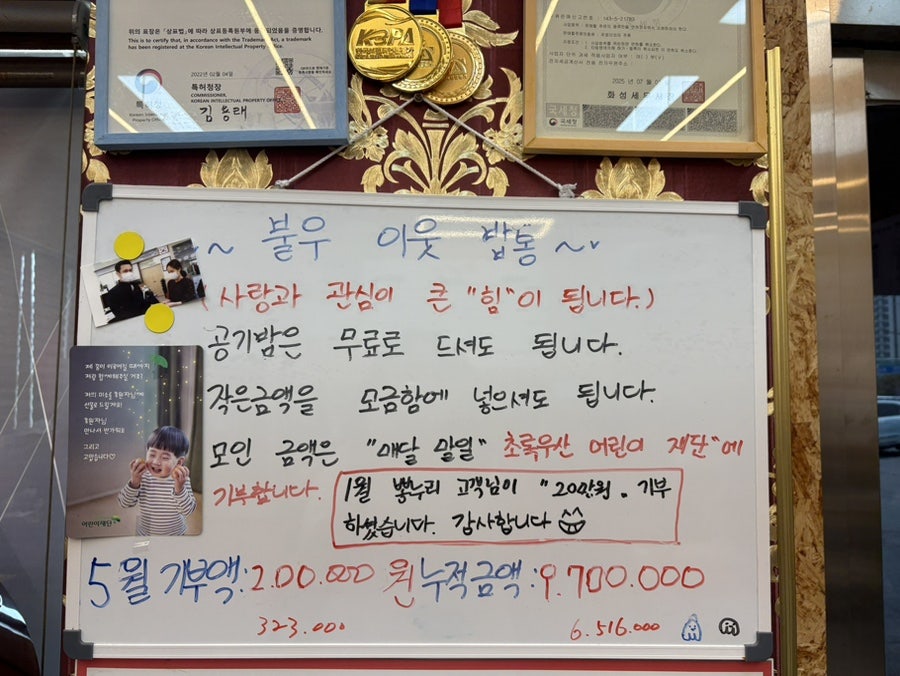 위의 표장은「상표법」에 따라 상표등록원부에 등록되었음을 증명합니다.
This is to certify that, in accordance with the Trademark Act, a trademark
has been registered at the Korean Intellectual Property Office.
2022년 02월 04일
특허청장
COMMISSIONER,
KOREAN INTELLECTUAL PROPERTY OFFICE
김용래
KBPA
2025 년 07 월
화성세무서장
국세청
~ 불우 이웃 밥통 ~
(사랑과 관심이 큰 "힘"이 됩니다.)
공기밥은 무료로 드셔도 됩니다.
작은금액을 모금함에 넣으셔도 됩니다.
모인 금액은 "매달 말일" 초록우산 어린이 재단"에
기부합니다.
1월 뽕누리 고객님이 "20만원" 기부
하셨습니다. 감사합니다
5월 기부액:200.000 원 누적금액:9.700.000
323.000 6.516.000
제 꿈이 이루어질 때까지
저랑 함께해주실 거죠?
저의 미소를 후원자님께
선물로 드릴게요!
후원자님
만나서 반가워요
그리고
고맙습니다♡
어린이재단